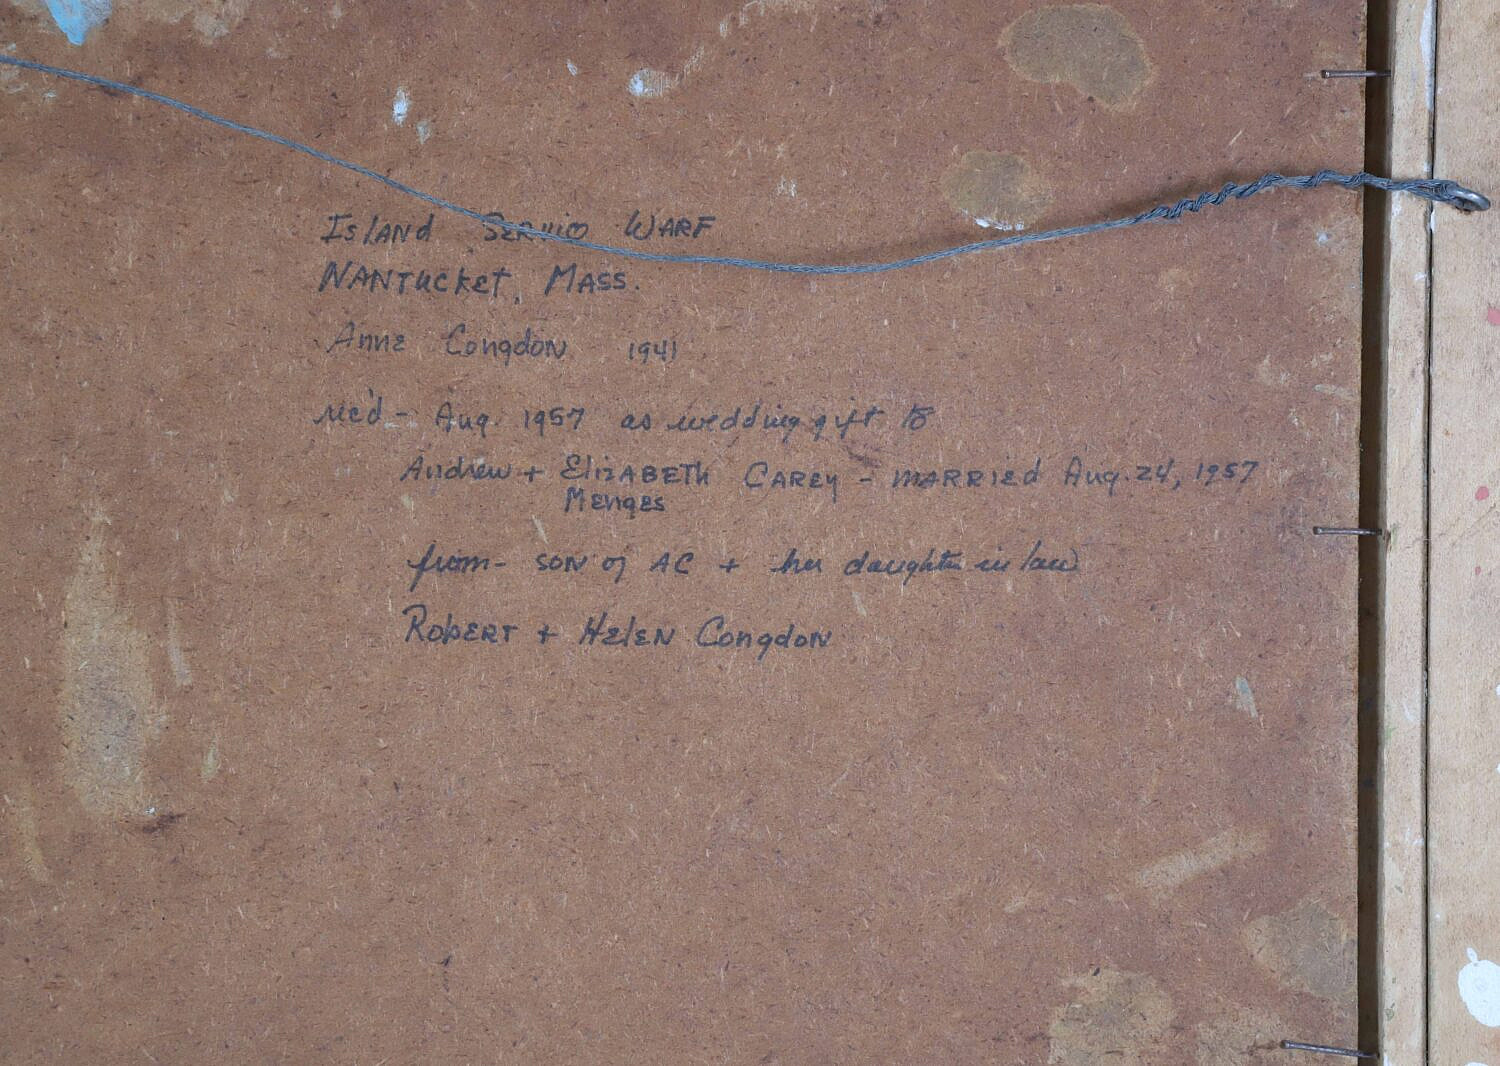 Island Service Warf
Nantucket, Mass.
Anne Congdon 1941
rec'd - Aug. 1957 as wedding gift to
Andrew + Elizabeth Carey - married Aug. 24, 1957
Menges
from - son of AC + her daughter in law
Robert + Helen Congdon